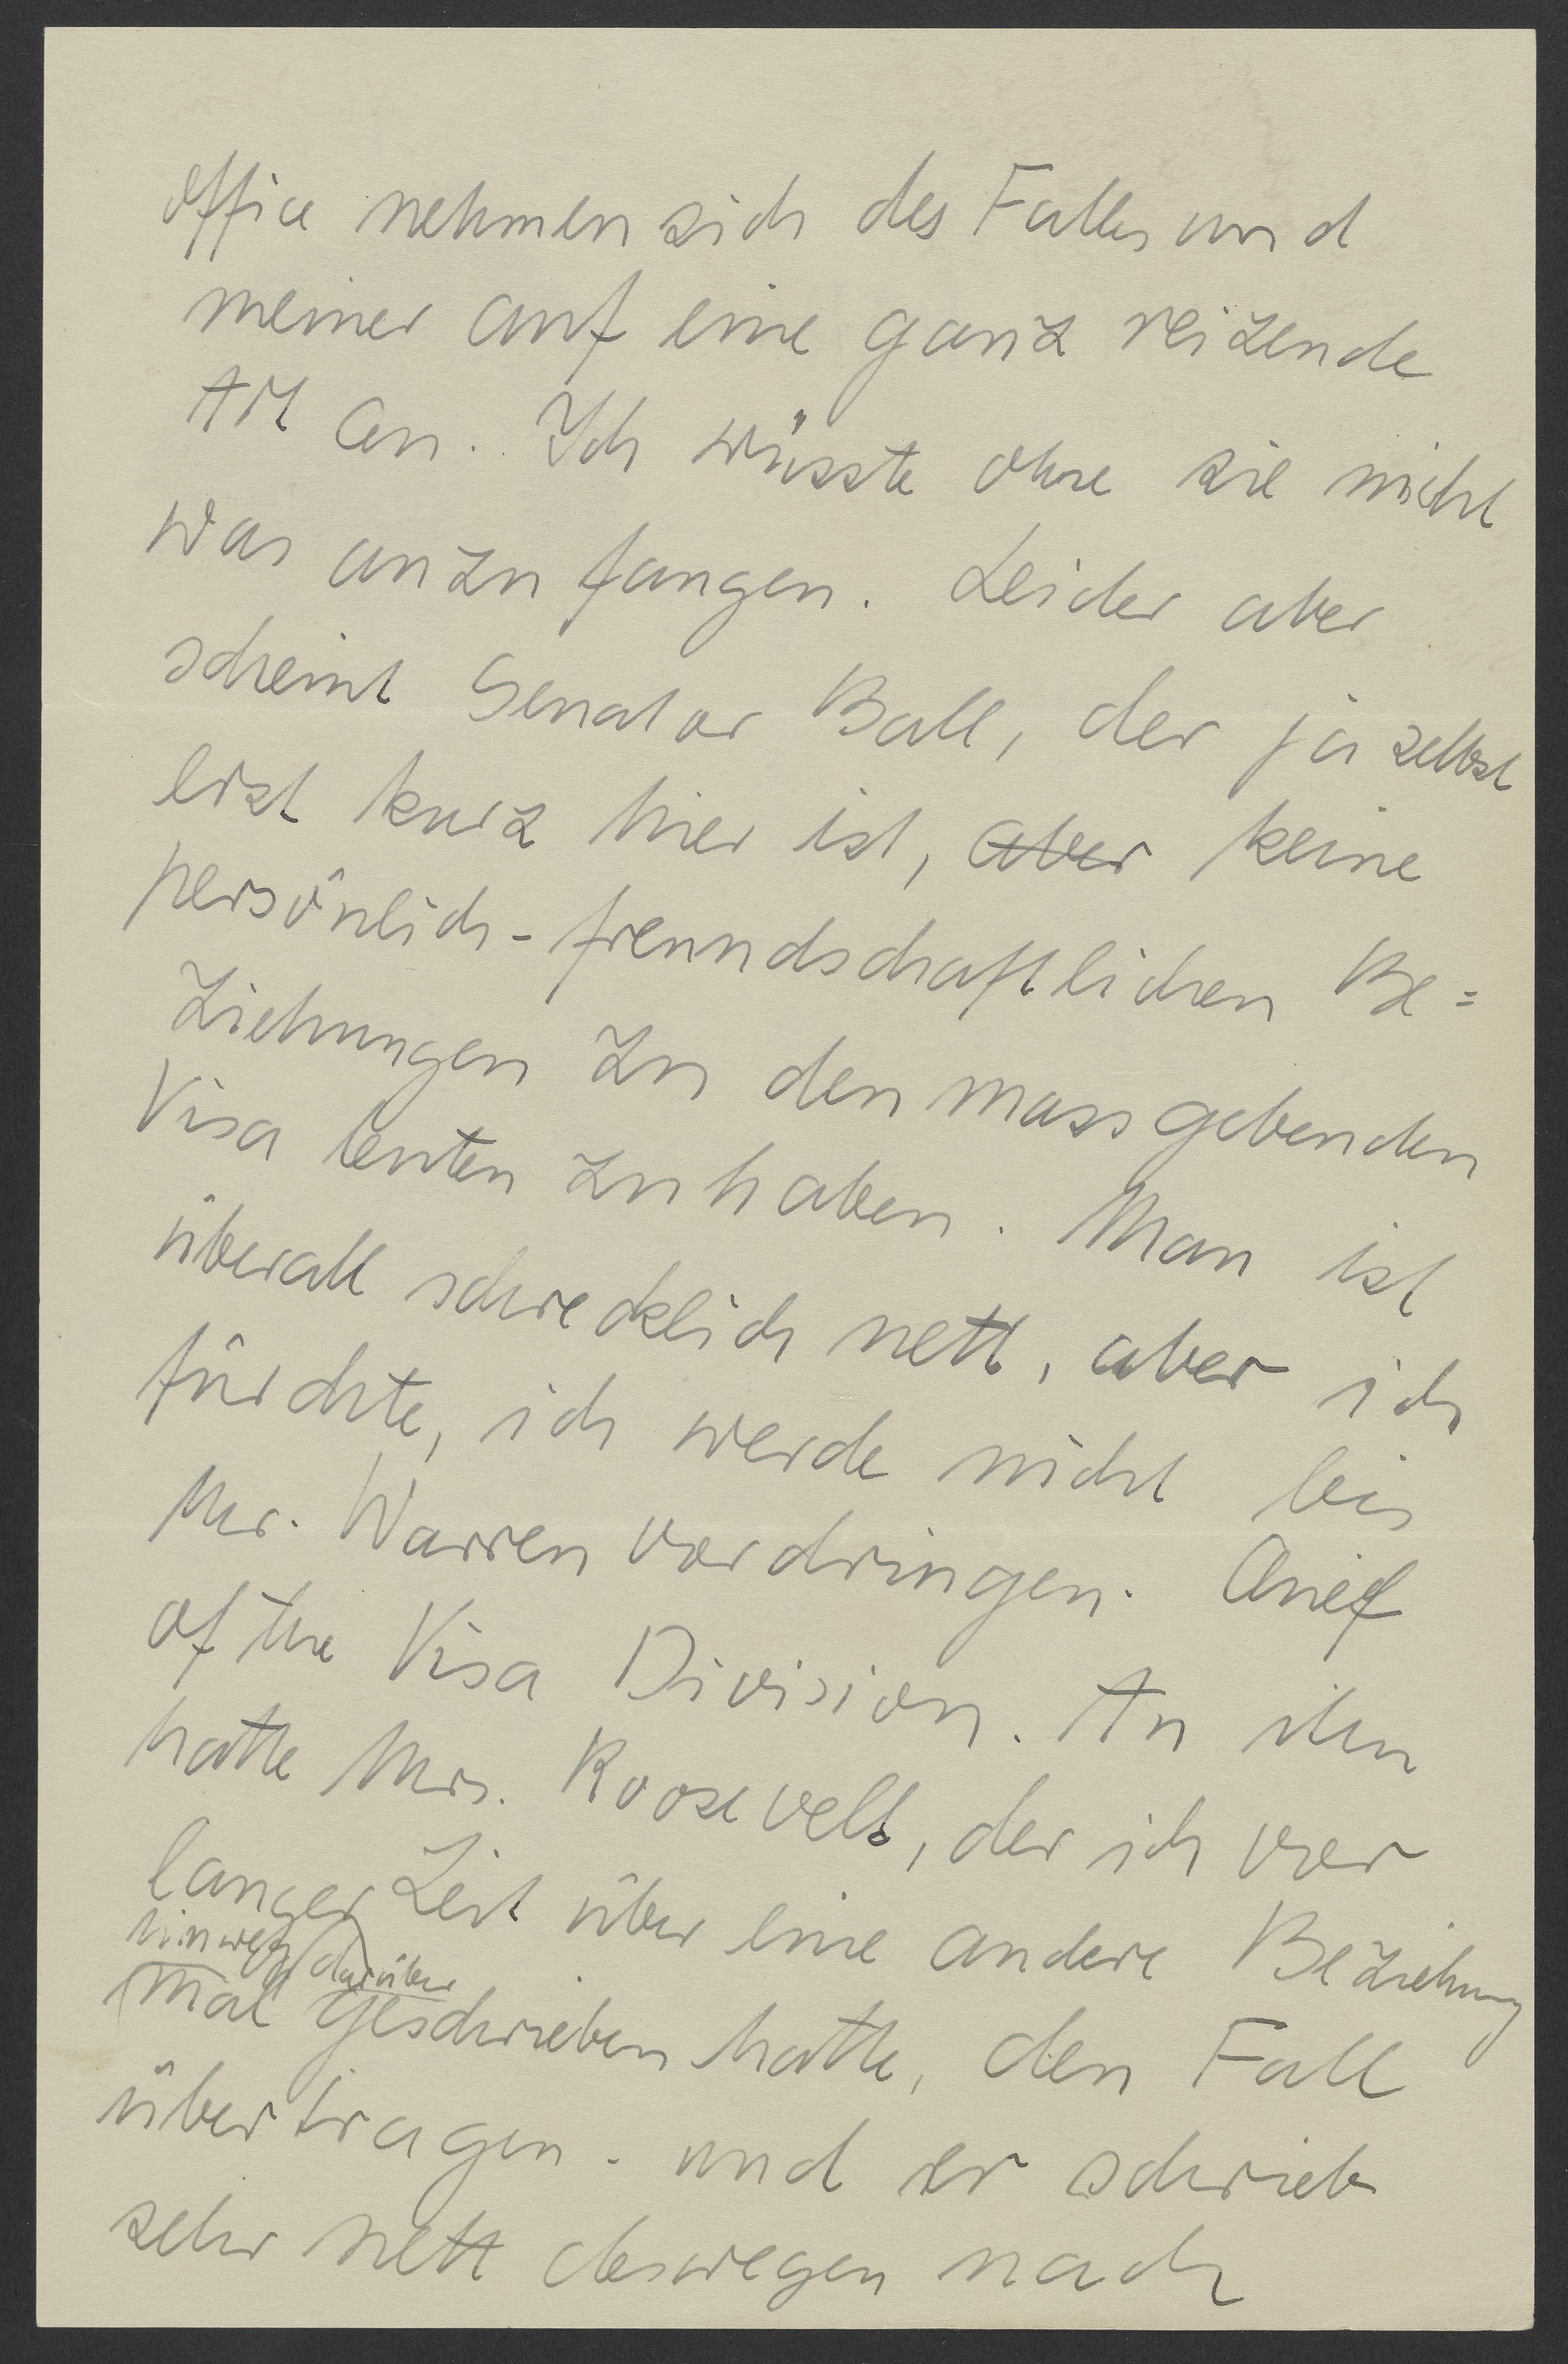 office nehmen sich des Falles und
meiner auf eine ganz reizende
Art an. Ich wüsste ohne sie nicht
was anzufangen. Leider aber
scheint Senator Ball, der ja selbst
erst kurz hier ist, aber keine
persönlich-freundschaftlichen Be=
ziehungen zu den massgebenden
Visa leuten zu haben. Man ist
überall schrecklich nett, aber ich
fürchte, ich werde nicht bis
Mr. Warren vordringen. Chief
of the Visa Division. An ihn
hatte Mrs. Roosevelt, der ich vor
langer Zeit über eine andere Beziehung
hinweg darüber
mal geschrieben hatte, den Fall
übertragen. und er schrieb
sehr nett deswegen nach